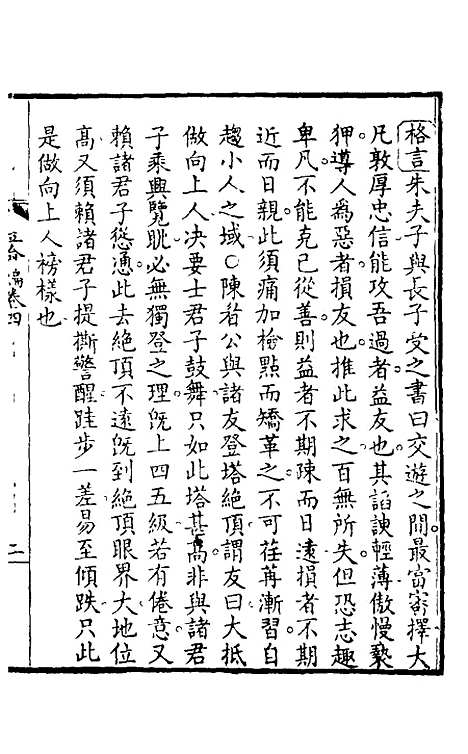 格言朱夫子與長子受之書曰交遊之間最富審擇大
凡敦厚忠信能攻吾過者益友也其諂諛輕薄傲慢褻
狎導人爲惡者損友也推此求之百無所失但恐志趣
卑凡不能克已從善則益者不期踈而日遠損者不期
近而日親此須痛加檢點而矯革之不可荏苒漸習自
趨小人之域○陳㫖公與諸友登塔絶頂謂友曰大抵
做向上人决要士君子鼓舞只如此塔甚高非與諸君
子乘興覽眺必無獨登之理旣上四五級若有倦意又
賴諸君子慫慂此去絶頂不遠旣到絶頂眼界大地位
高又須賴諸君子提撕警醒跬步一差易至傾跌只此
是做向上人榜樣也
卷四
二